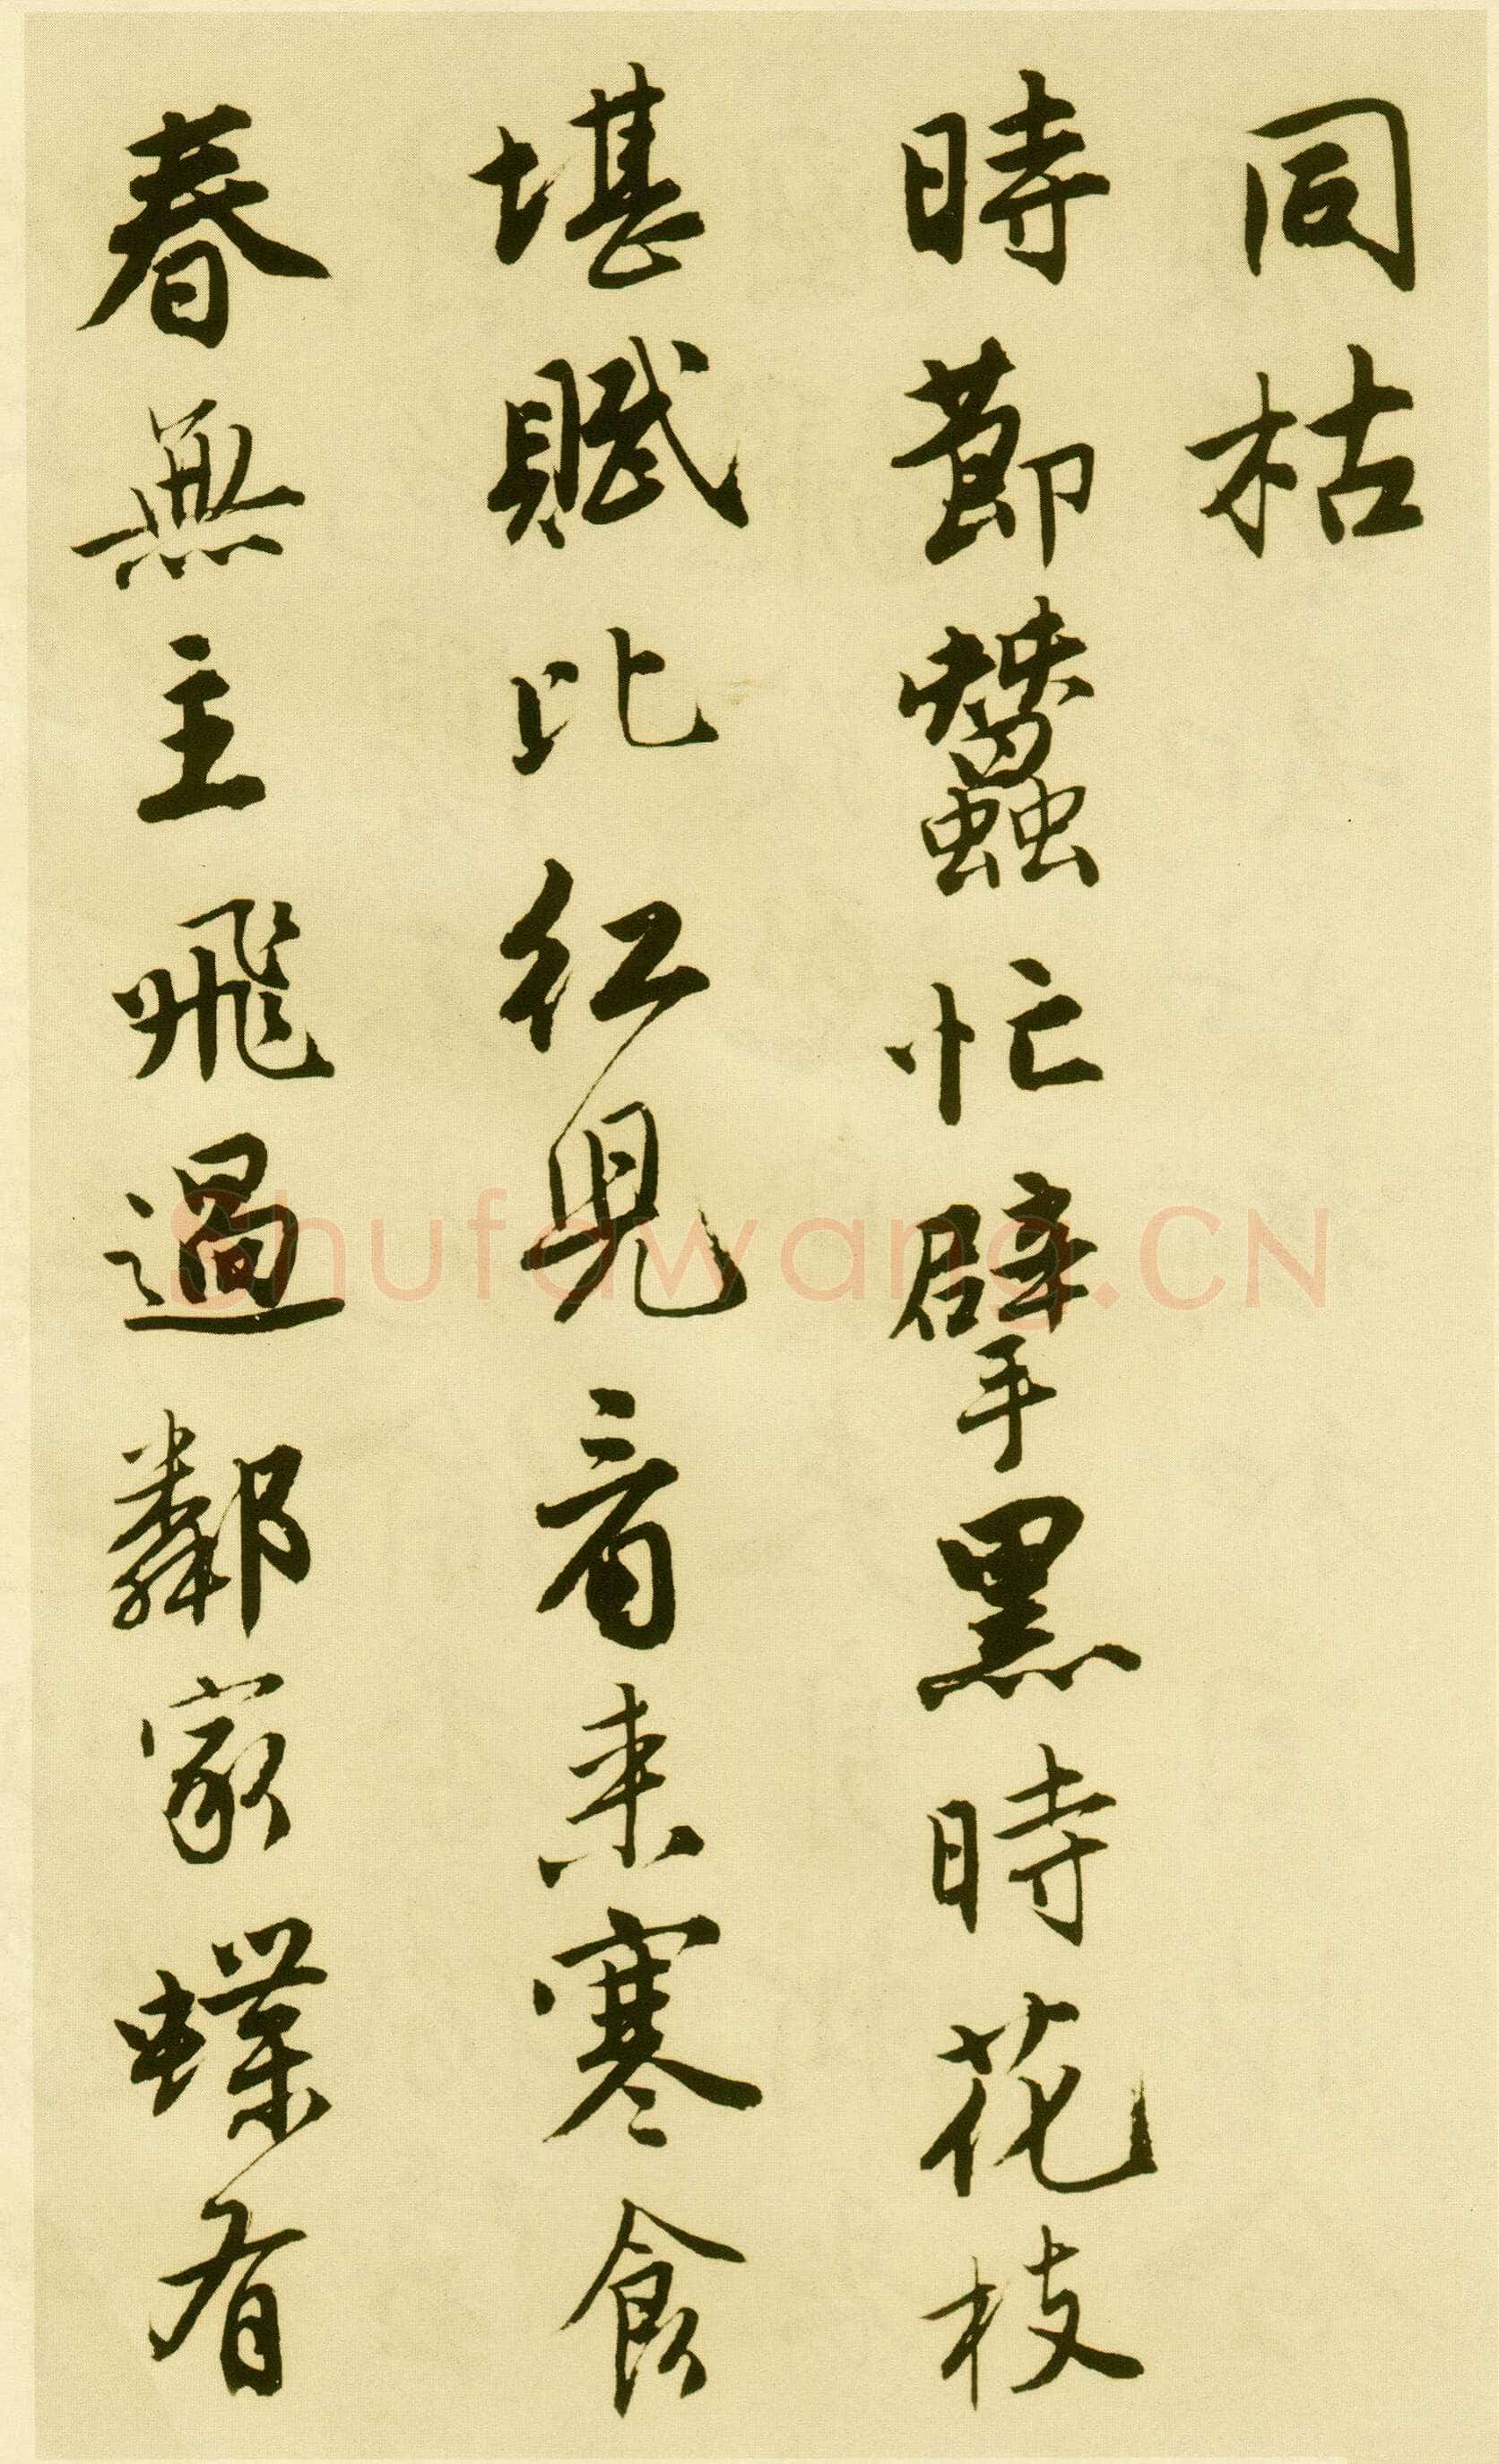 同枯
時節蠶忙擘黑時花枝
堪賦比紅兒看来寒食
春無主飛過鄰家蝶有
Shufawang.CN